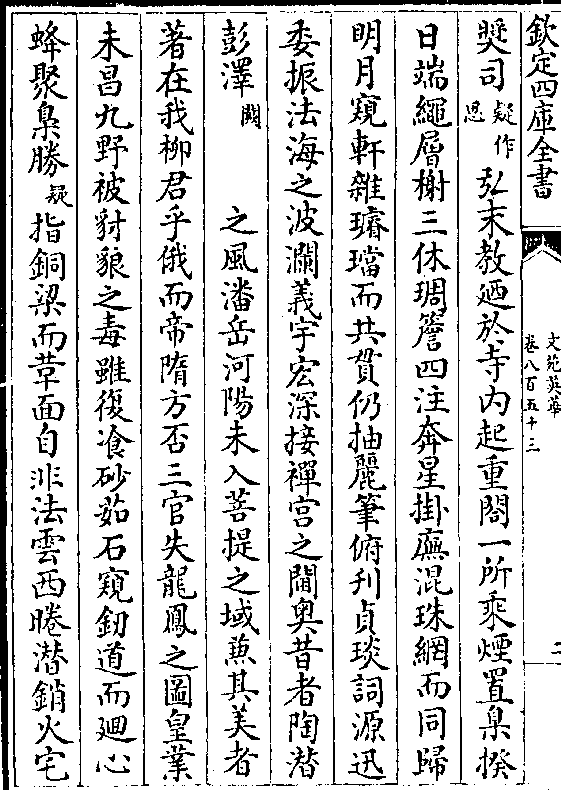 欽定四庫全書
文苑英華
卷八百五十三
二
奬司疑作恩弘末教廼於寺内起重閣一所乘煙置臬揆
日端繩層榭三休琱簷四注奔星掛廡混珠網而同歸
明月窺軒雜璿璫而共貫仍抽麗筆俯刋貞琰詞源迅
委振法海之波瀾義宇宏深接禪宫之閫奥昔者陶潛
彭澤闕之風潘岳河陽未入菩提之域兼其美者
著在我柳君乎俄而帝隋方否三官失龍鳳之圖皇業
未昌九野被豺狼之毒雖復飡砂茹石窺釰道而廻心
蜂聚梟勝疑指銅梁而革面自非法雲西晻潜銷火宅